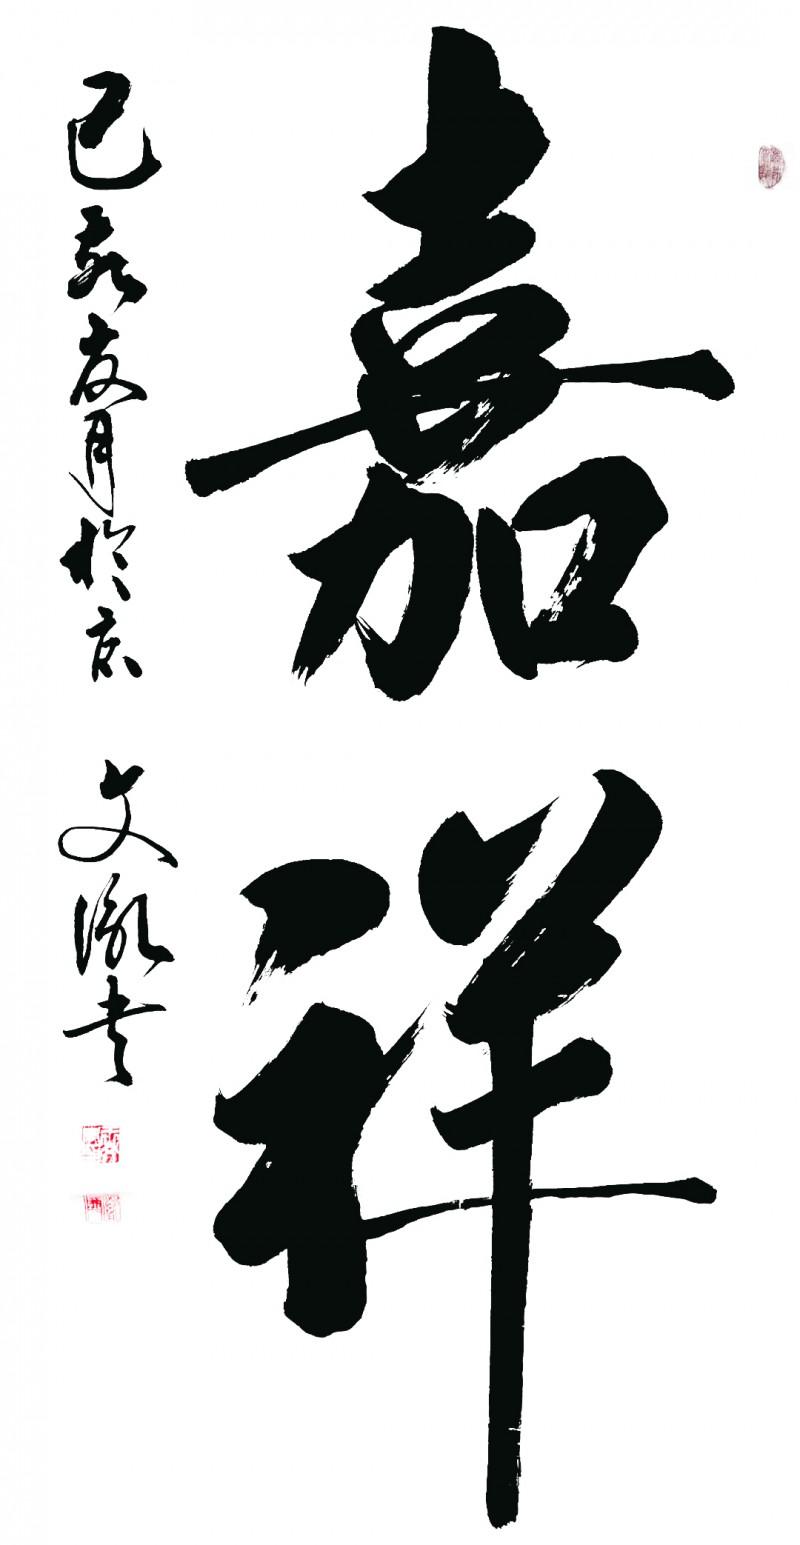 嘉祥
己亥夏月於京 文胤書